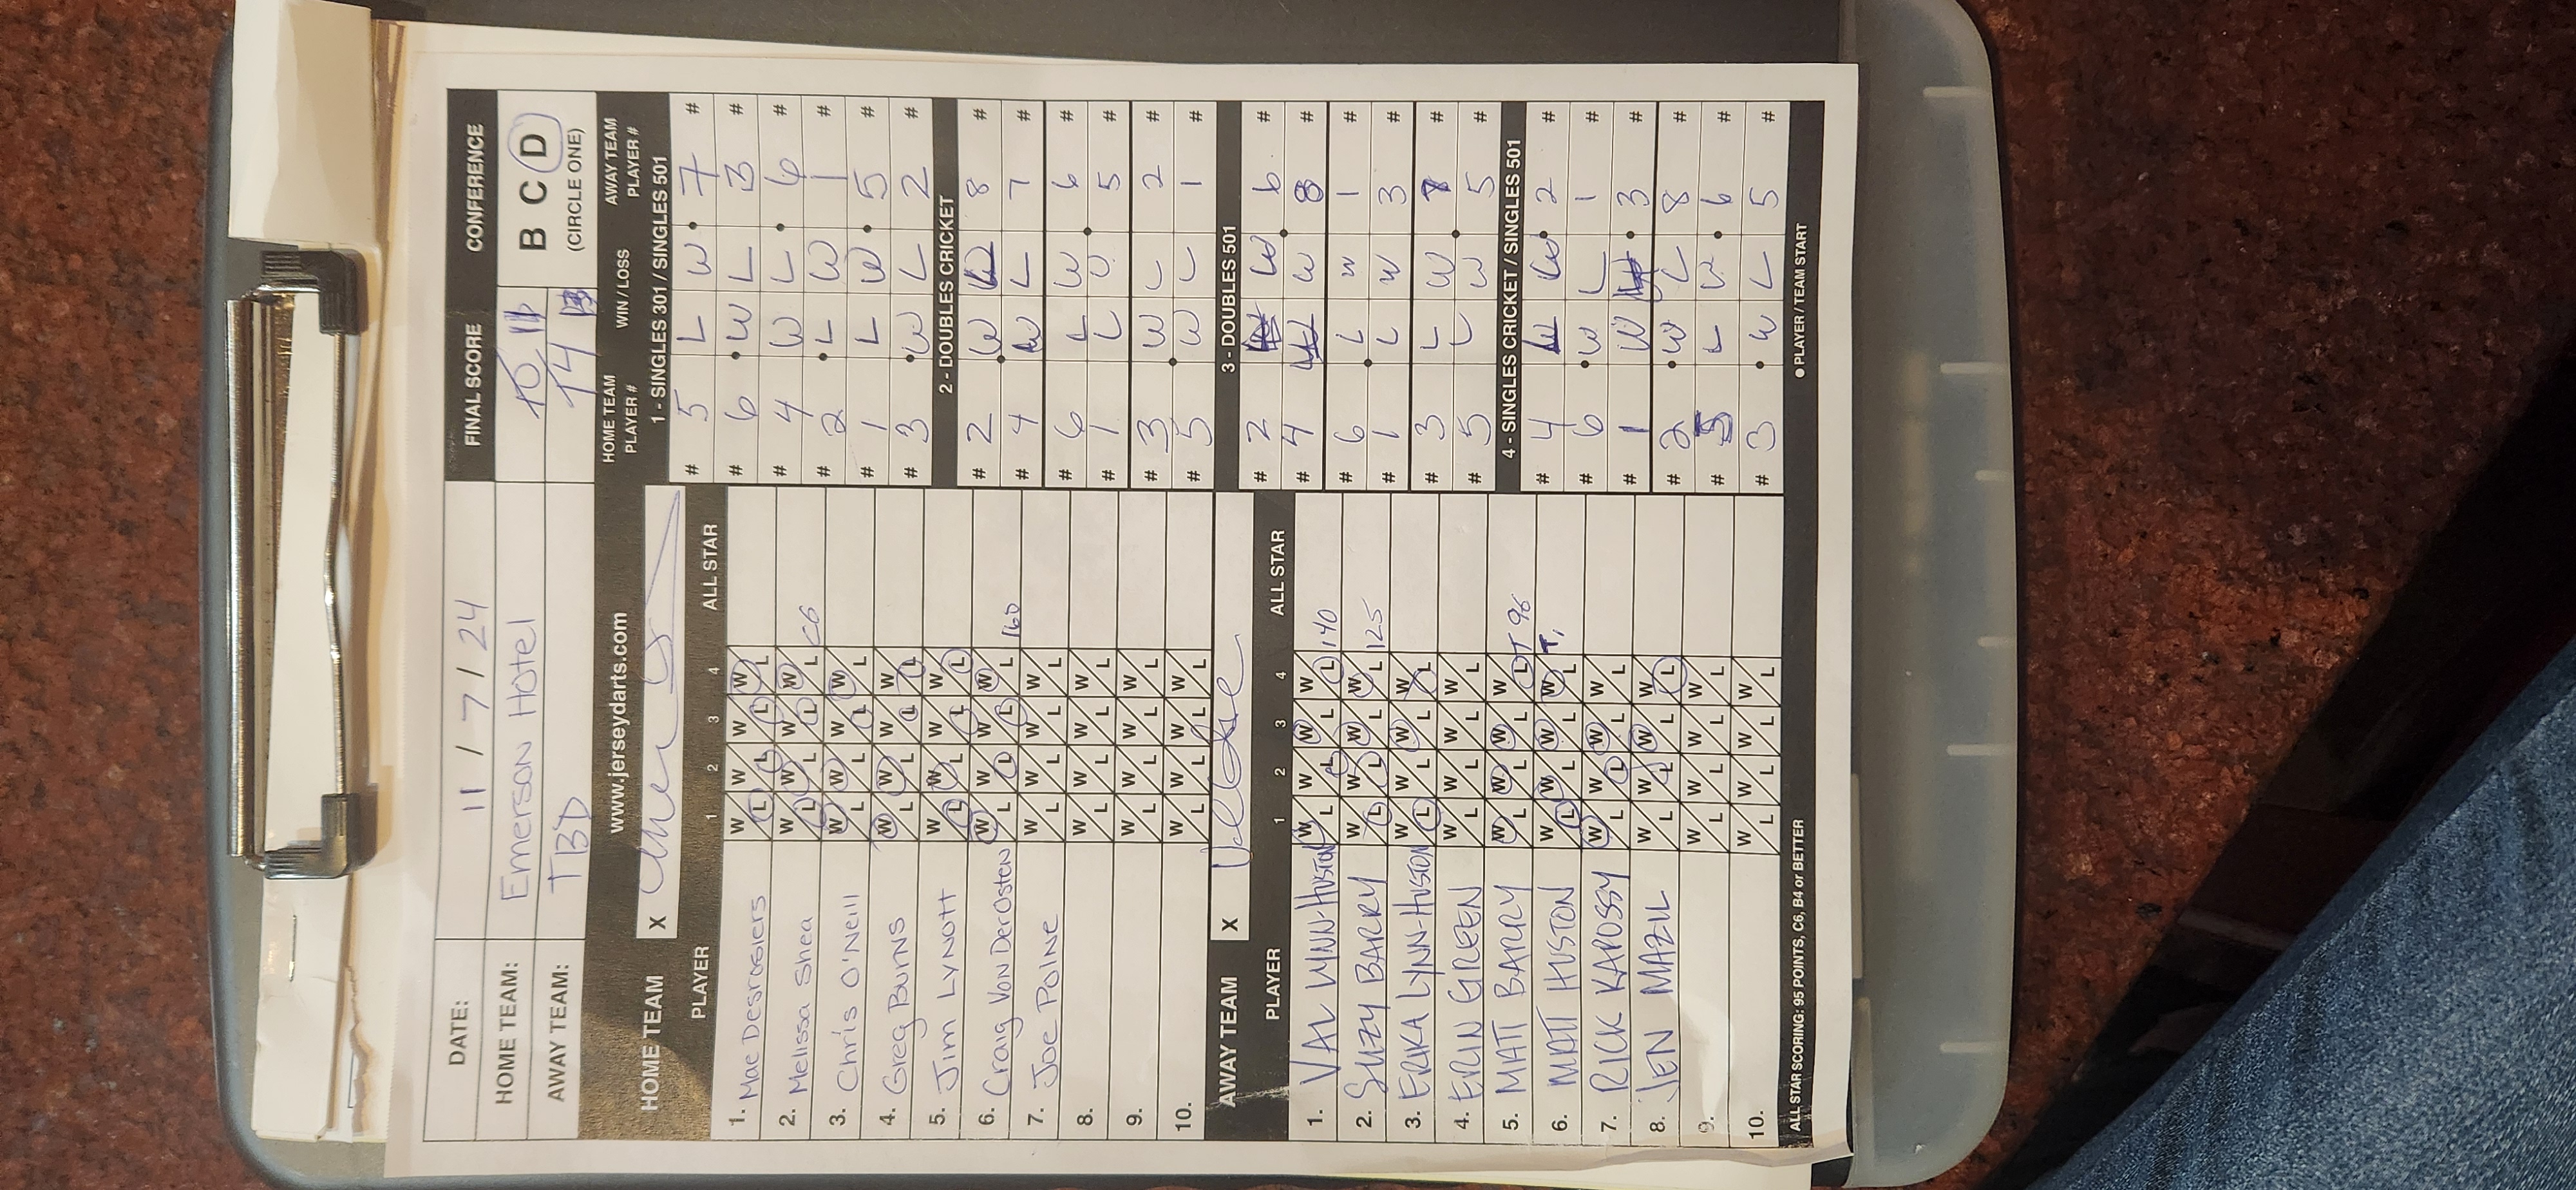 DATE: 11 / 7 / 24 FINAL SCORE CONFERENCE
HOME TEAM: Emerson Hotel 10 B C D
AWAY TEAM: TBD 14 (CIRCLE ONE)
www.jerseydarts.com
HOME TEAM X
PLAYER 1 2 3 4 ALL STAR
1. Mae Desrosiers W/L W/L W/L W/L
2. Melissa Shea W/L W/L W/L W/L C6
3. Chris O'Neill W/L W/L W/L W/L
4. Greg Burns W/L W/L W/L W/L
5. Jim Lynott W/L W/L W/L W/L
6. Craig Von DerOsten W/L W/L W/L W/L 160
7. Joe Polne W/L W/L W/L W/L
8. W/L W/L W/L W/L
9. W/L W/L W/L W/L
10. W/L W/L W/L W/L
AWAY TEAM X
PLAYER 1 2 3 4 ALL STAR
1. VAL LYNN-HUSTON W/L W/L W/L W/L 140
2. SUZY BARRY W/L W/L W/L W/L 125
3. ERIKA LYNN-HUSTON W/L W/L W/L W/L
4. ERIN GREEN W/L W/L W/L W/L
5. MATT BARRY W/L W/L W/L W/L T 96
6. MATT HUSTON W/L W/L W/L W/L T,
7. RICK KAPOSSY W/L W/L W/L W/L
8. JEN MAZIL W/L W/L W/L W/L
9. W/L W/L W/L W/L
10. W/L W/L W/L W/L
ALL STAR SCORING: 95 POINTS, C6, B4 or BETTER
HOME TEAM PLAYER # WIN / LOSS AWAY TEAM PLAYER #
1 - SINGLES 301 / SINGLES 501
# 5 L W 7 #
# 6 W L 3 #
# 4 W L 6 #
# 2 L W 1 #
# 1 L W 5 #
# 3 W L 2 #
2 - DOUBLES CRICKET
# 2 W 8 #
# 4 W L 7 #
# 6 L W 6 #
# 1 L 5 #
# 3 W L 2 #
# 5 W L 1 #
3 - DOUBLES 501
# 2 W 6 #
# 4 W 8 #
# 6 L W 1 #
# 1 L W 3 #
# 3 L W 7 #
# 5 L W 5 #
4 - SINGLES CRICKET / SINGLES 501
# 4 L W 2 #
# 6 W L 1 #
# 1 W 3 #
# 2 W L 8 #
# 5 L W 6 #
# 3 W L 5 #
● PLAYER / TEAM START